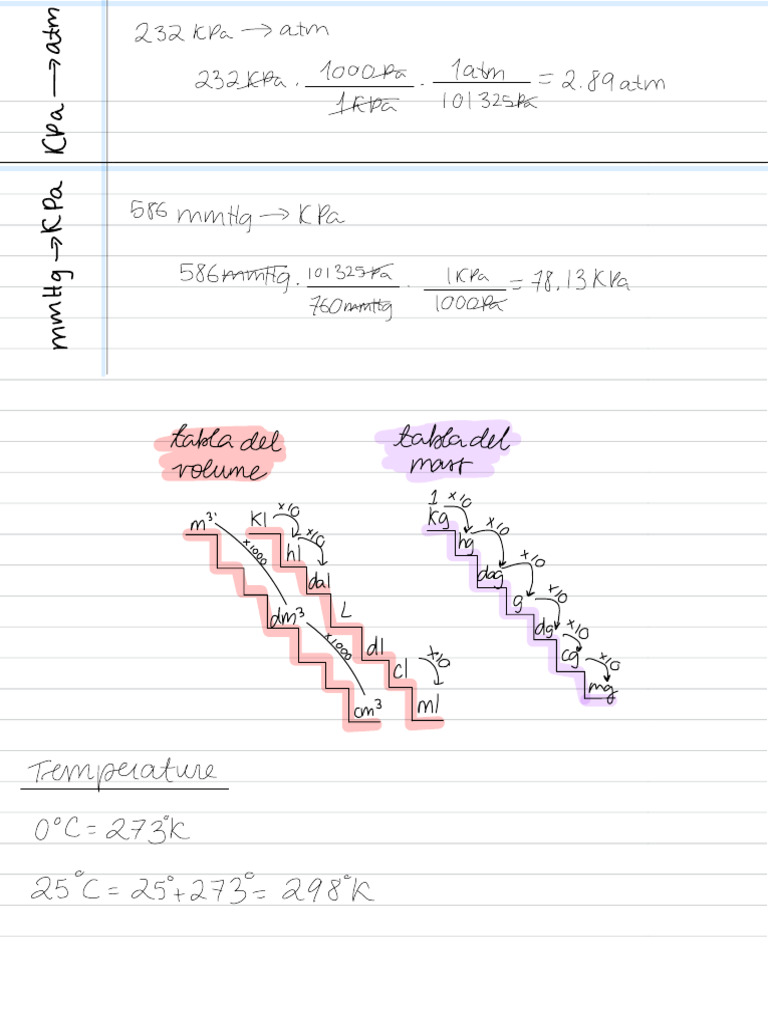 KPa → atm
232 KPa → atm
232 KPa · 1000Pa / 1KPa · 1atm / 101325Pa = 2.89 atm
mmHg → KPa
586 mmHg → KPa
586 mmHg · 101325Pa / 760mmHg · 1KPa / 1000Pa = 78.13 KPa
tabla del
volume
m³ x1000 dm³ x1000 cm³
Kl x10 hl x10 dal L dl cl x10 ml
tabla del
mass
1 Kg x10 hg x10 dag x10 g x10 dg x10 cg x10 mg
Temperature
0°C = 273°K
25°C = 25° + 273° = 298°K